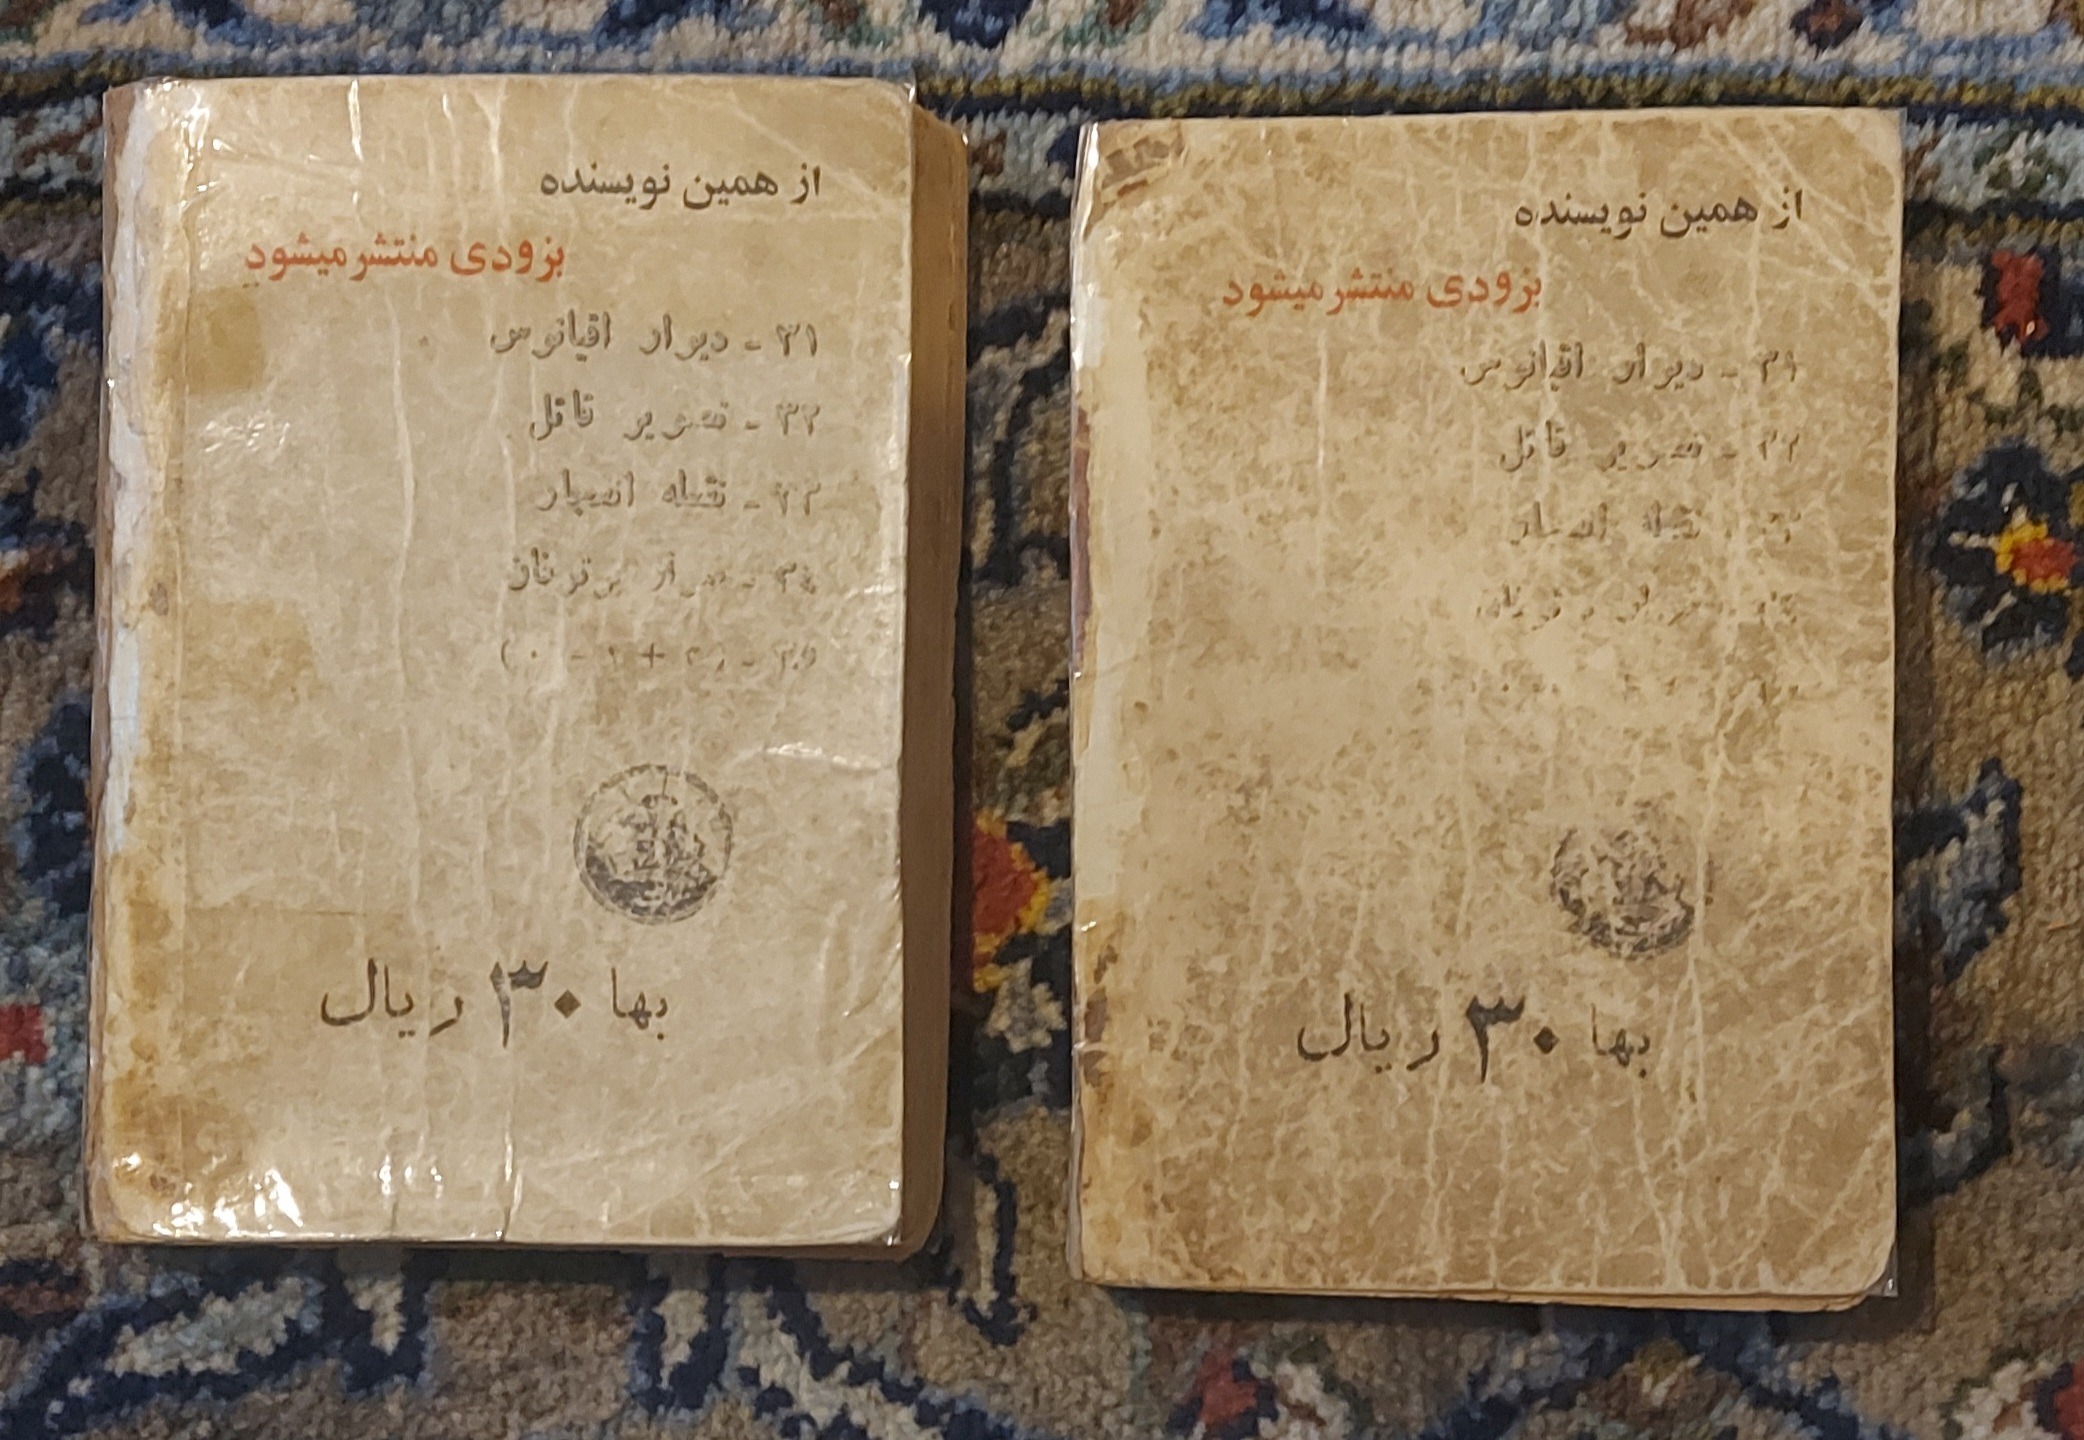 از همین نویسنده
بزودی منتشر میشود
۳۱ - دیوار اقیانوس
۳۲ - تصویر قاتل
۳۳ - نقطه انفجار
۳۴ -
از همین نویسنده
بزودی منتشر میشود
۳۱ - دیوار اقیانوس
۳۲ - تصویر قاتل
نقطه انفجار
بها ۳۰ ریال
بها ۳۰ ریال